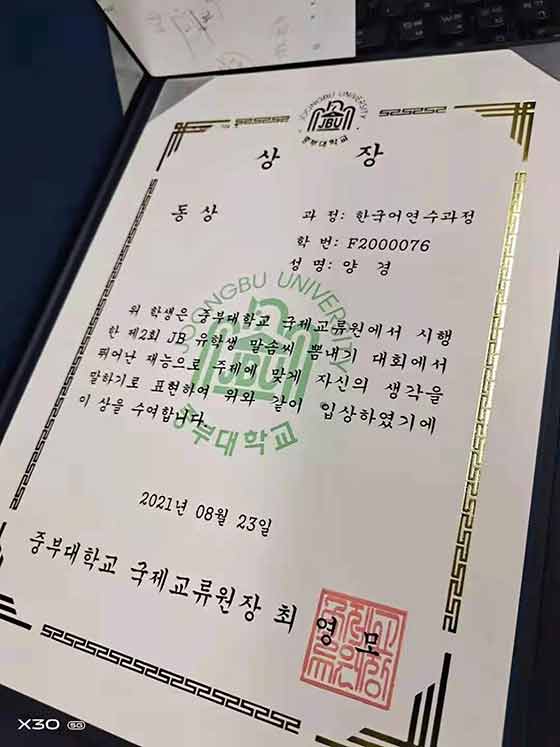 JOONGBU UNIVERSITY
JBU
중부대학교
상 장
동상
과 정: 한국어연수과정
학 번: F2000076
성 명: 양 경
JOONGBU UNIVERSITY
JBU
중부대학교
위 학생은 중부대학교 국제교류원에서 시행
한 제2회 JB 유학생 말솜씨 뽐내기 대회에서
뛰어난 재능으로 주제에 맞게 자신의 생각을
말하기로 표현하여 위와 같이 입상하였기에
이 상을 수여합니다.
2021년 08월 23일
중부대학교 국제교류원장 최 영 모
X30 5G